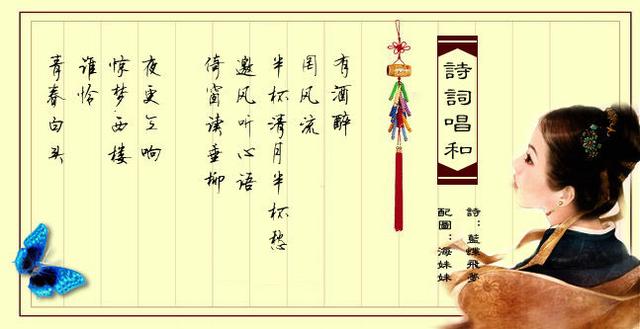 詩詞唱和
詩：藍蝶飛夢
配圖：海妹妹
有酒醉
风流
半杯清月半杯愁
邀风听心语
倚窗读垂柳
夜更响
惊梦西楼
谁怜
青春白头